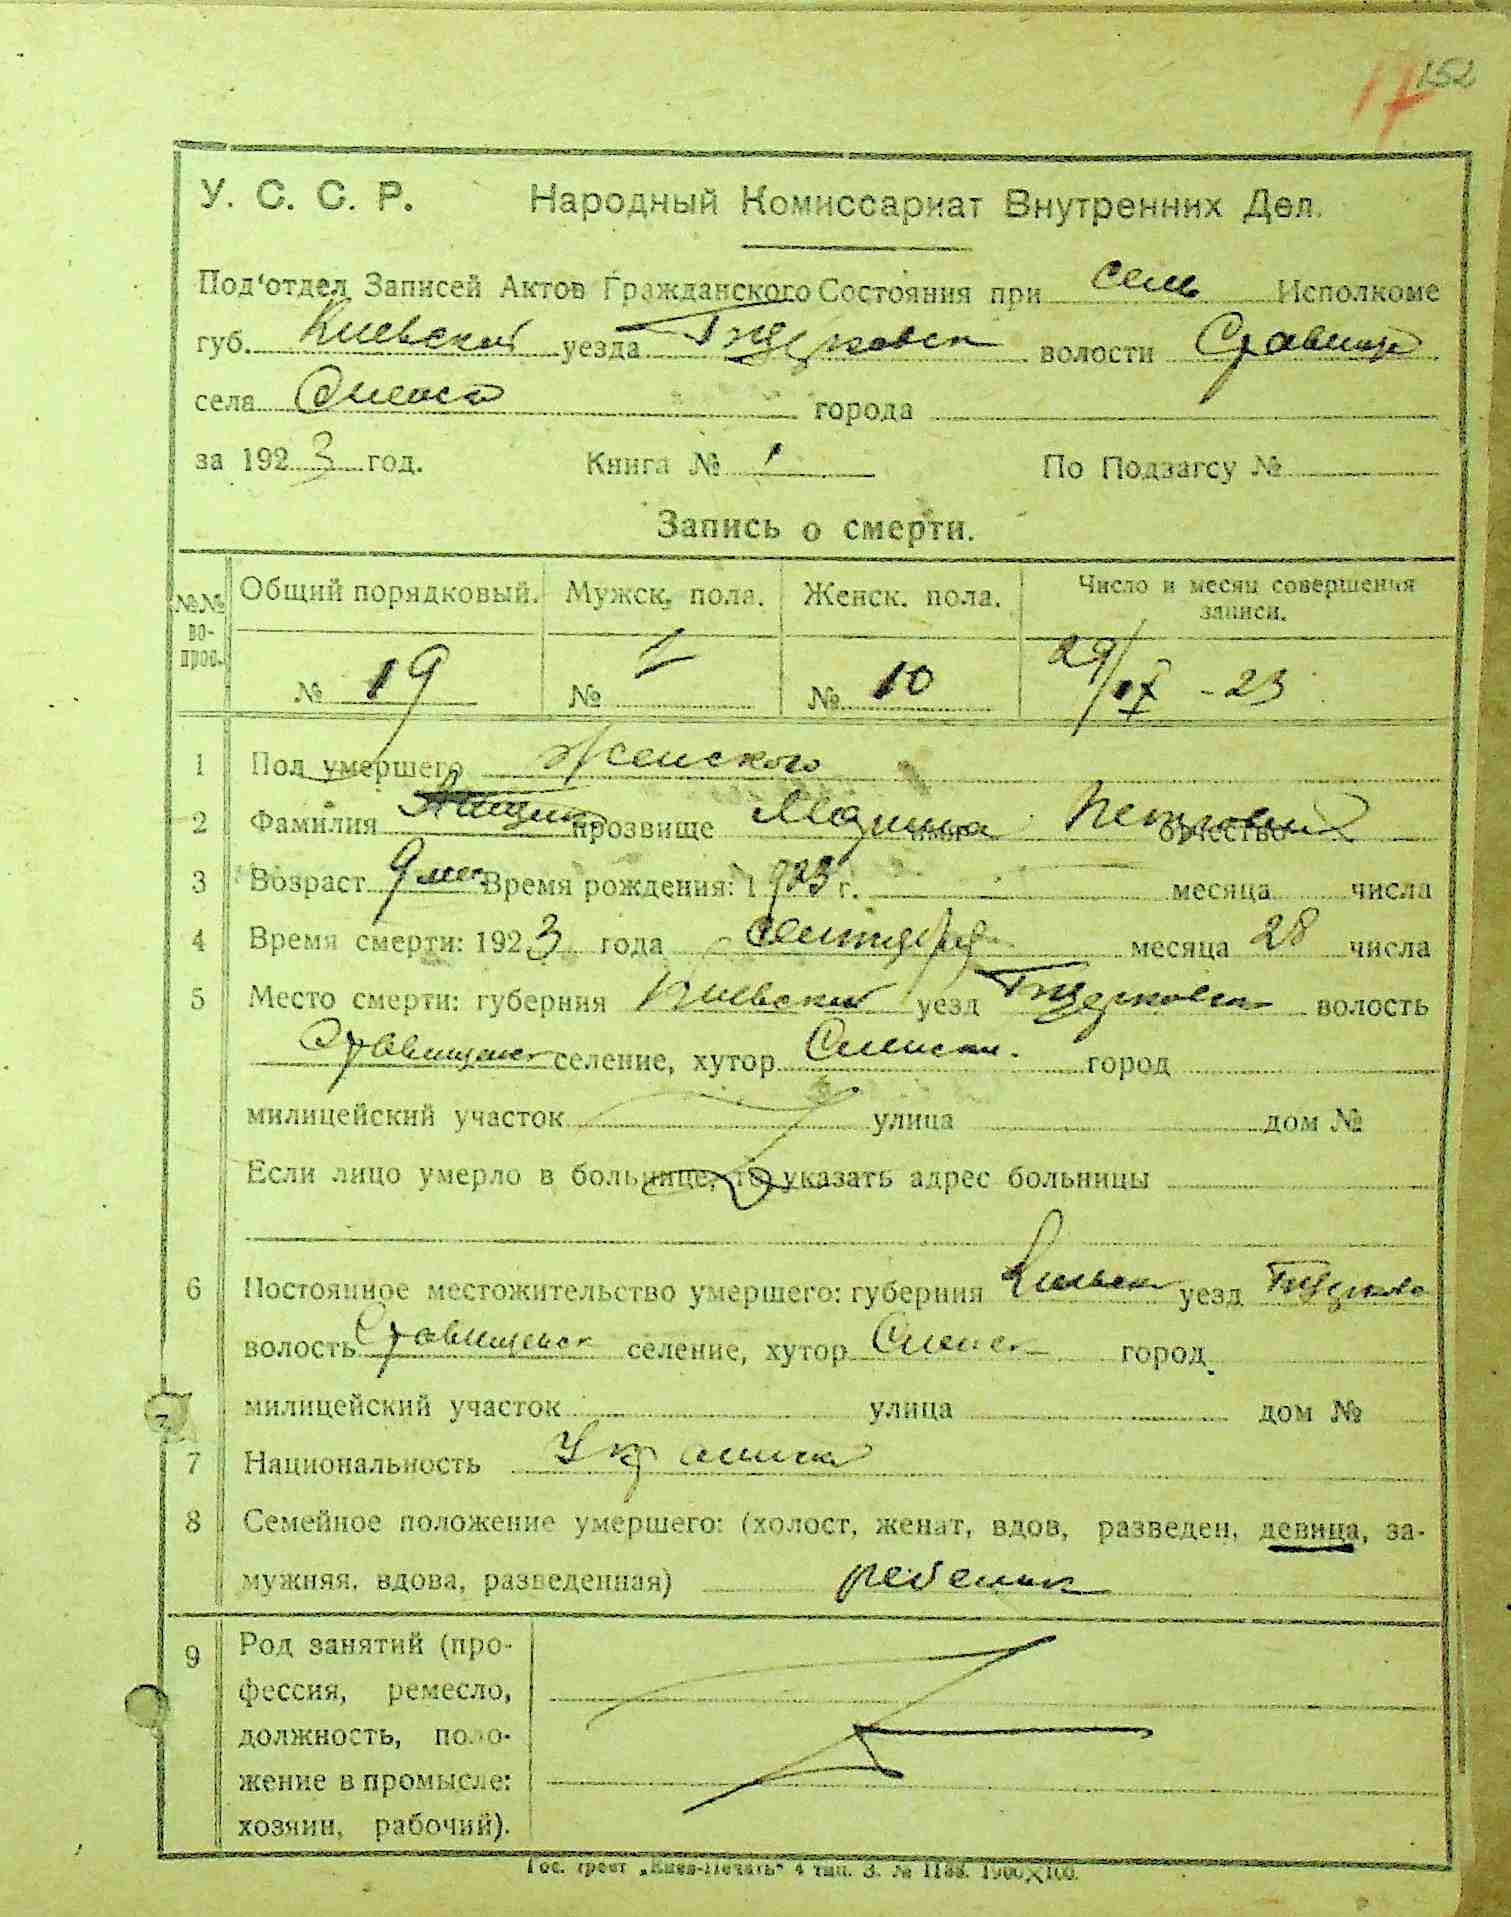 152
17
У. С. С. Р. Народный Комиссариат Внутренних Дел.
Под‘отдел Записей Актов Гражданского Состояния при сель Исполкоме
губ. Киевской уезда волости
села города
за 1923 год. Книга № 1 По Подзагсу №
Запись о смерти.
№№ вопрос. Общий порядковый. Мужск. пола. Женск. пола. Число и месяц совершения записи.
№ 19 № № 10 29/IX - 23
1 Пол умершего Женского
2 Фамилия прозвище имя отчество
3 Возраст 9 мес Время рождения: 1923 г. месяца числа
4 Время смерти: 1923 года сентября месяца 28 числа
5 Место смерти: губерния Киевской уезд волость
селение, хутор город
милицейский участок улица дом №
Если лицо умерло в больнице, то указать адрес больницы
6 Постоянное местожительство умершего: губерния Киевск уезд
волость селение, хутор город
милицейский участок улица дом №
7 Национальность
8 Семейное положение умершего: (холост, женат, вдов, разведен, девица, за-
мужняя, вдова, разведенная) ребенок
9 Род занятий (про-
фессия, ремесло,
должность, поло-
жение в промысле:
хозяин, рабочий).
Гос. трест „Киев-Печать“ 4 тип. З. №